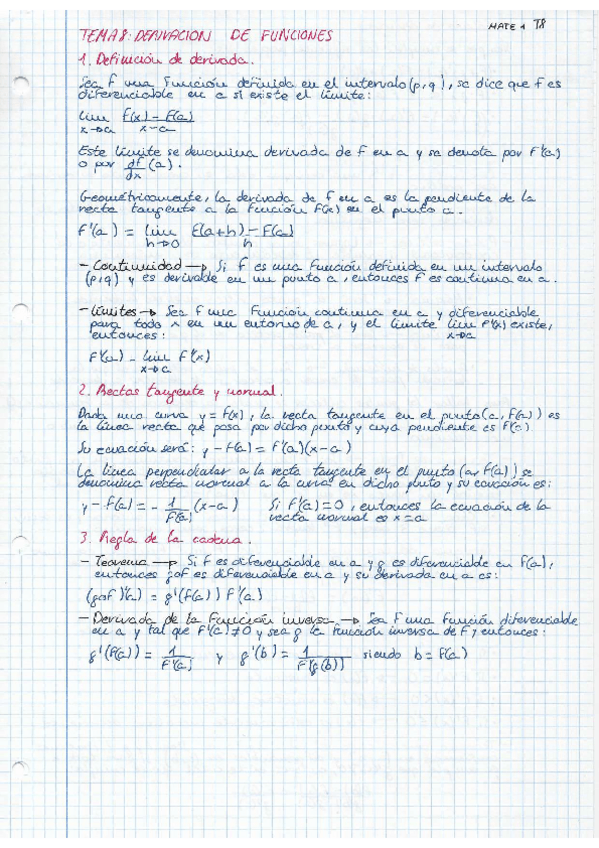 MATE 1 T8
TEMA 8: DERIVACION DE FUNCIONES
1. Definición de derivada.
Sea f una función definida en el intervalo (p, q), se dice que f es
diferenciable en a si existe el límite:
lim f(x) - f(a)
x→a x - a
Este límite se denomina derivada de f en a y se denota por f'(a)
o por df (a).
dx
Geométricamente, la derivada de f en a es la pendiente de la
recta tangente a la función f(x) en el punto a.
f'(a) = lim f(a+h) - f(a)
h→0 h
- Continuidad → Si f es una función definida en un intervalo
(p, q) y es derivable en un punto a, entonces f es continua en a.
- Límites → Sea f una función continua en a y diferenciable
para todo x en un entorno de a, y el límite lim f'(x) existe,
x→a
entonces:
f'(a) = lim f'(x)
x→a
2. Rectas tangente y normal.
Dada una curva y = f(x), la recta tangente en el punto (a, f(a)) es
la línea recta que pasa por dicho punto y cuya pendiente es f'(a)
Su ecuación será: y - f(a) = f'(a)(x - a)
La línea perpendicular a la recta tangente en el punto (a, f(a)) se
denomina recta normal a la curva en dicho punto y su ecuación es:
y - f(a) = - 1 (x - a) Si f'(a) = 0, entonces la ecuación de la
f'(a) recta normal es x = a
3. Regla de la cadena.
- Teorema → Si f es diferenciable en a y g es diferenciable en f(a),
entonces gof es diferenciable en a y su derivada en a es:
(gof)'(a) = g'(f(a)) f'(a)
- Derivada de la función inversa → Sea f una función diferenciable
en a y tal que f'(a) ≠ 0 y sea g la función inversa de f, entonces:
g'(f(a)) = 1 y g'(b) = 1 siendo b = f(a)
f'(a) f'(g(b))